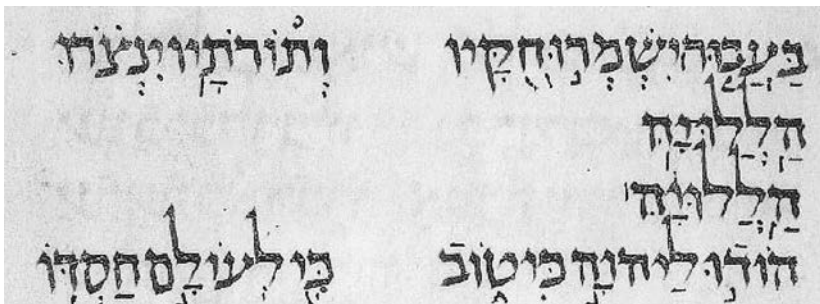 בַּעֲבוּר יִשְׁמְרוּ חֻקָּיו וְתוֹרֹתָיו יִנְצֹרוּ
הַלְלוּיָהּ
הַלְלוּיָהּ
הוֹדוּ לַיהוָה כִּי טוֹב כִּי לְעוֹלָם חַסְדּוֹ